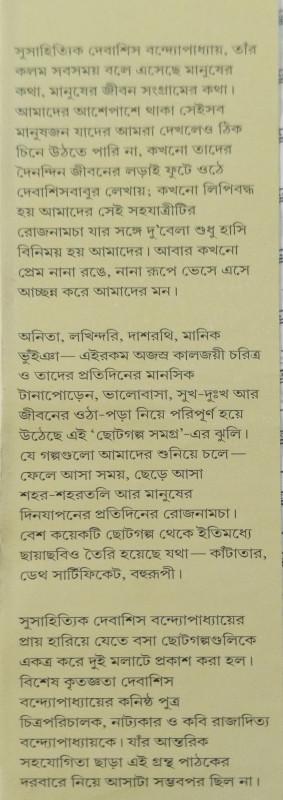 সুসাহিত্যিক দেবাশিস বন্দ্যোপাধ্যায়, তাঁর
কলম সবসময় বলে এসেছে মানুষের
কথা, মানুষের জীবন সংগ্রামের কথা।
আমাদের আশেপাশে থাকা সেইসব
মানুষজন যাদের আমরা দেখলেও ঠিক
চিনে উঠতে পারি না, কখনো তাদের
দৈনন্দিন জীবনের লড়াই ফুটে ওঠে
দেবাশিসবাবুর লেখায়; কখনো লিপিবদ্ধ
হয় আমাদের সেই সহযাত্রীটির
রোজনামচা যার সঙ্গে দু'বেলা শুধু হাসি
বিনিময় হয় আমাদের। আবার কখনো
প্রেম নানা রঙে, নানা রূপে ভেসে এসে
আচ্ছন্ন করে আমাদের মন।

অনিতা, লখিন্দরি, দাশরথি, মানিক
ভুঁইঞা— এইরকম অজস্র কালজয়ী চরিত্র
ও তাদের প্রতিদিনের মানসিক
টানাপোড়েন, ভালোবাসা, সুখ-দুঃখ আর
জীবনের ওঠা-পড়া নিয়ে পরিপূর্ণ হয়ে
উঠেছে এই 'ছোটগল্প সমগ্র'-এর ঝুলি।
যে গল্পগুলো আমাদের শুনিয়ে চলে—
ফেলে আসা সময়, ছেড়ে আসা
শহর-শহরতলি আর মানুষের
দিনযাপনের প্রতিদিনের রোজনামচা।
বেশ কয়েকটি ছোটগল্প থেকে ইতিমধ্যে
ছায়াছবিও তৈরি হয়েছে যথা— কাঁটাতার,
ডেথ সার্টিফিকেট, বহুরূপী।

সুসাহিত্যিক দেবাশিস বন্দ্যোপাধ্যায়ের
প্রায় হারিয়ে যেতে বসা ছোটগল্পগুলিকে
একত্র করে দুই মলাটে প্রকাশ করা হল।
বিশেষ কৃতজ্ঞতা দেবাশিস
বন্দ্যোপাধ্যায়ের কনিষ্ঠ পুত্র
চিত্রপরিচালক, নাট্যকার ও কবি রাজাদিত্য
বন্দ্যোপাধ্যায়কে। যাঁর আন্তরিক
সহযোগিতা ছাড়া এই গ্রন্থ পাঠকের
দরবারে নিয়ে আসাটা সম্ভবপর ছিল না।